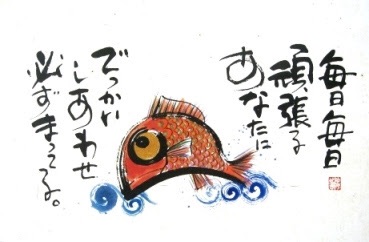 毎日毎日
頑張る
あなたに
でっかい
しあわせ
必ずまってる。